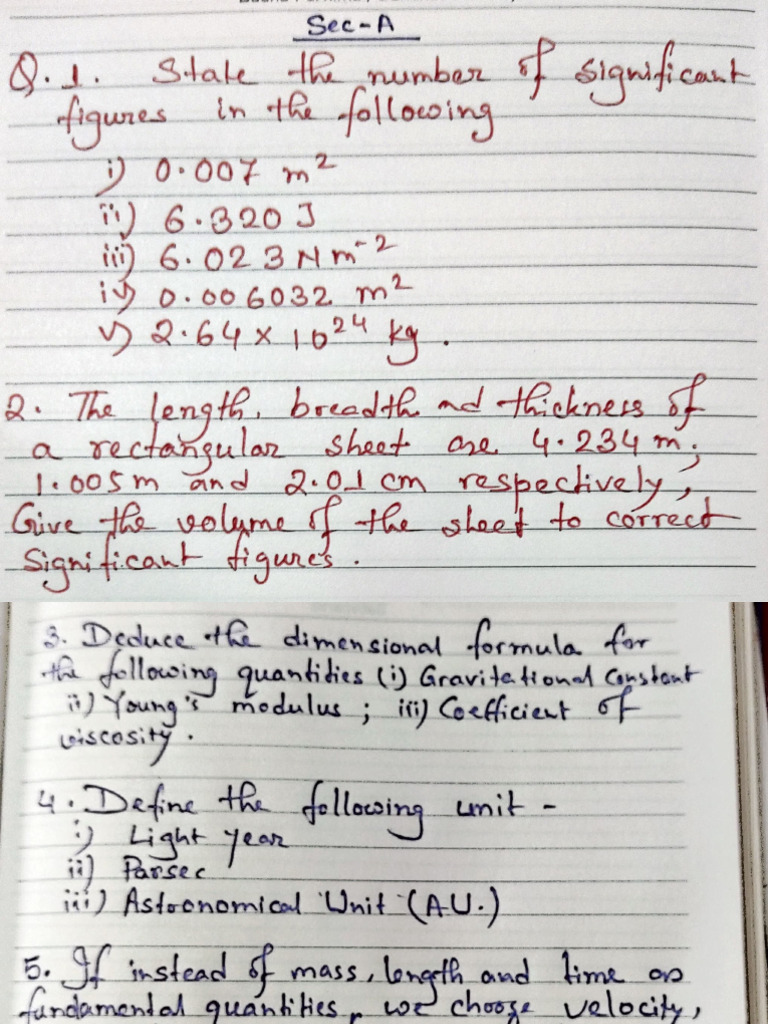 Sec-A
Q.1. State the number of significant
figures in the following
i) 0.007 m²
ii) 6.320 J
iii) 6.023 Nm⁻²
iv) 0.006032 m²
v) 2.64 x 10²⁴ kg.
2. The length, breadth and thickness of
a rectangular sheet are 4.234 m;
1.005m and 2.01 cm respectively,
Give the volume of the sheet to correct
Significant figures.
3. Deduce the dimensional formula for
the following quantities (i) Gravitational Constant
ii) Young's modulus ; iii) Coefficient of
viscosity.
4. Define the following unit -
i) Light year
ii) Parsec
iii) Astronomical Unit (A.U.)
5. If instead of mass, length and time as
fundamental quantities, we choose velocity,